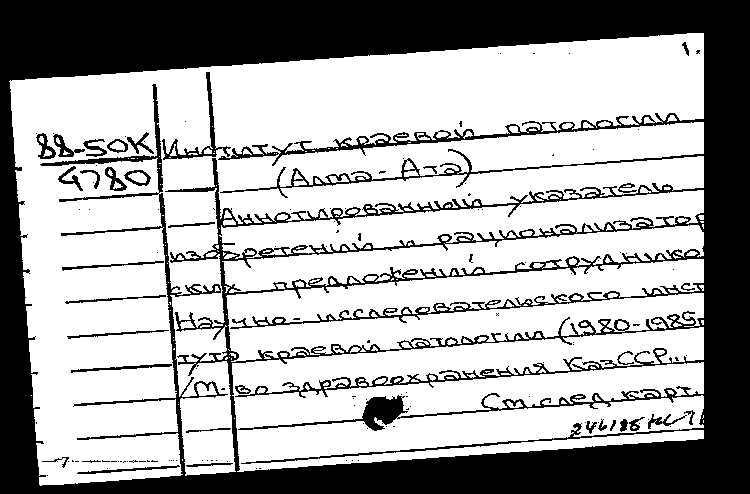 1.
88-50К Институт краевой патологии
4780 (Алма-Ата)
Аннотированный указатель
изобретений и рационализатор
ских предложений сотруднико
Научно-исследовательского инст
тута краевой патологии (1980-1985г
/М-во здравоохранения КазССР...
См.след.карт.